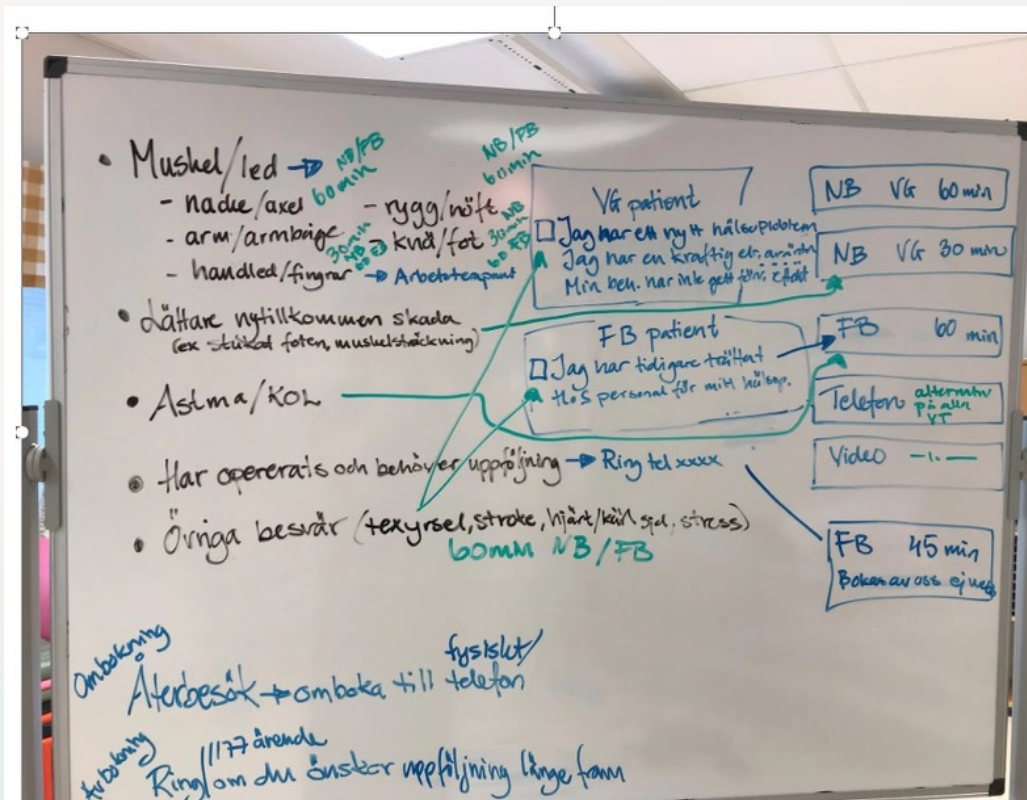 • Muskel/led → NB/FB 60min
- nacke/axel - rygg/höft NB/FB 60min
- arm/armbåge 30min NB 60 FB - knä/fot 30min NB 60 FB
- handled/fingrar → Arbetsterapeut
• Lättare nytillkommen skada
(ex stukat foten, muskelsträckning)
• Astma/KOL
• Har opererats och behöver uppföljning → Ring tel xxxx
• Övriga besvär (tex yrsel, stroke, hjärt/kärl sjd, stress)
60min NB/FB
VG patient
Jag har ett nytt hälsoproblem
Jag har en kraftig
Min beh. har inte gett förv. effekt
FB patient
Jag har tidigare träffat
HoS personal för mitt hälsop.
NB VG 60 min
NB VG 30 min
FB 60 min
Telefon alternativ på alla VT
Video -ıı-
FB 45 min
Bokas av oss ej
Ombokning
Återbesök → omboka till fysiskt/telefon
Avbokning
Ring/1177 ärende om du önskar uppföljning länge fram